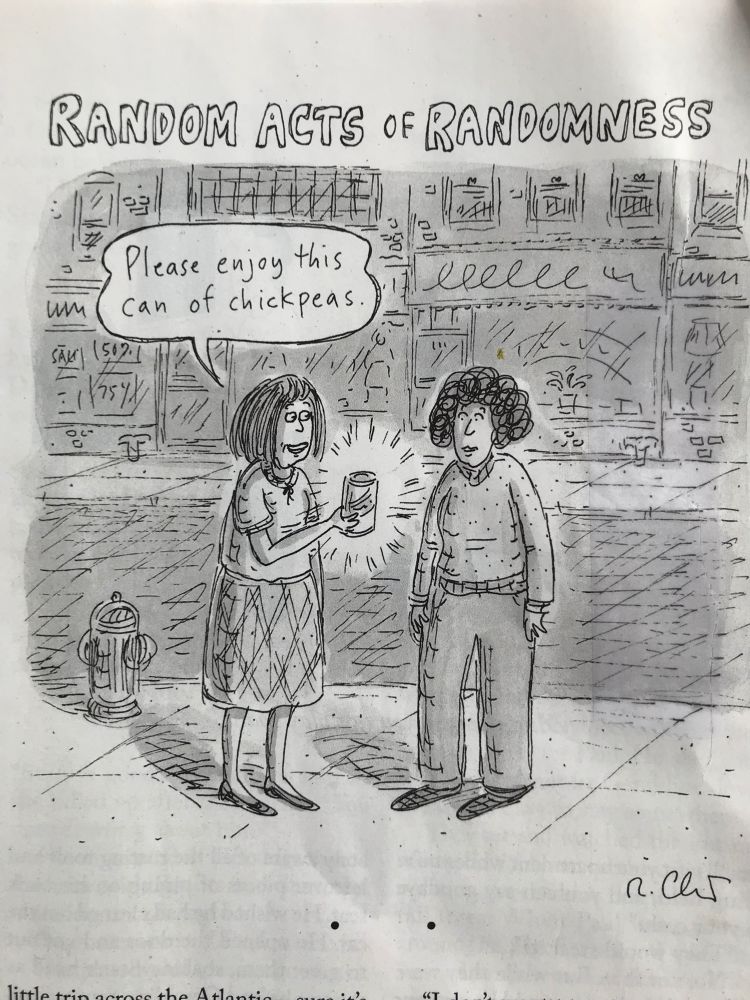 RANDOM ACTS OF RANDOMNESS
Please enjoy this
can of chickpeas.
SALE
50%
75%
R. Chast
little trip across the Atlantic—sure it's
"I don't